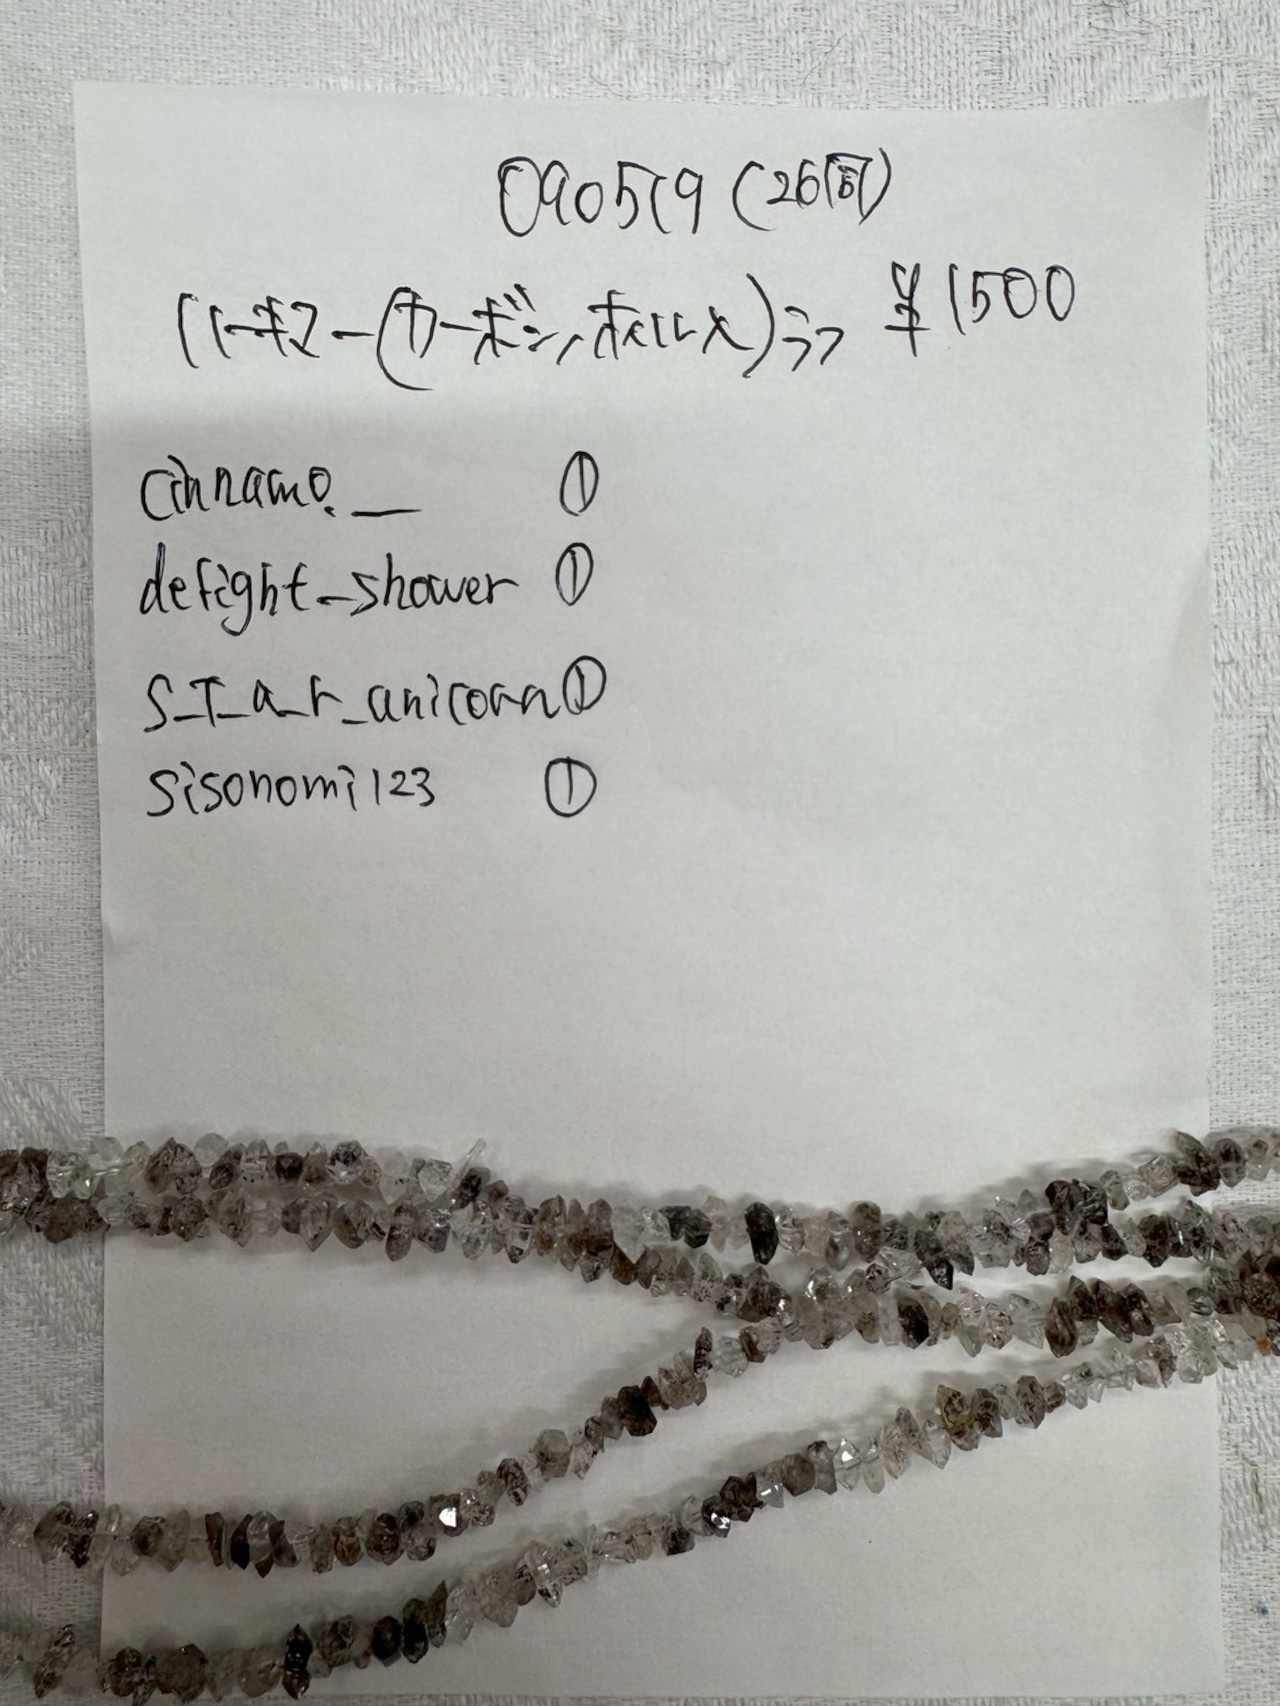 090519 (26回)
ハーキマー(カーボン, ホイルメ) ラフ ¥1500
cinnamo.__ ①
defight_shower ①
S_T_a_r_unicorn ①
sisonomi123 ①